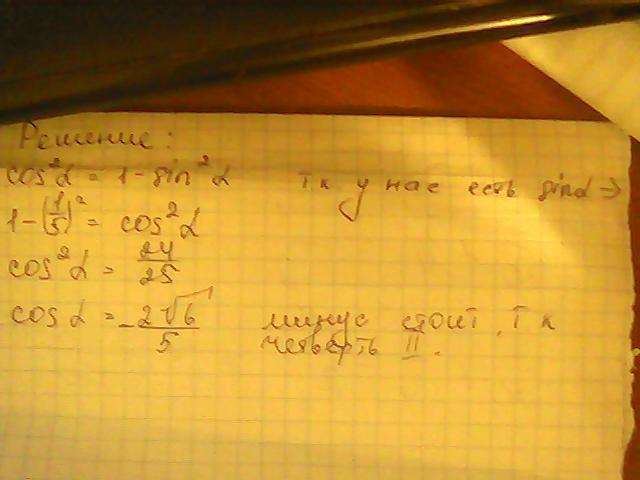 Решение:
cos²α = 1 - sin²α т к у нас есть sinα →
1 - (1/5)² = cos²α
cos²α = 24/25
cosα = -2√6/5 минус стоит, т к
четверть II.